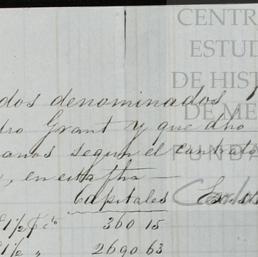 CENTR
ESTUD
DE HIST
DE ME
dos denominados
dro Grant y que dho
anos segun el contrato
en esta fha
Capitales
1 1/2 360 15
1 1/2 " 2690.63